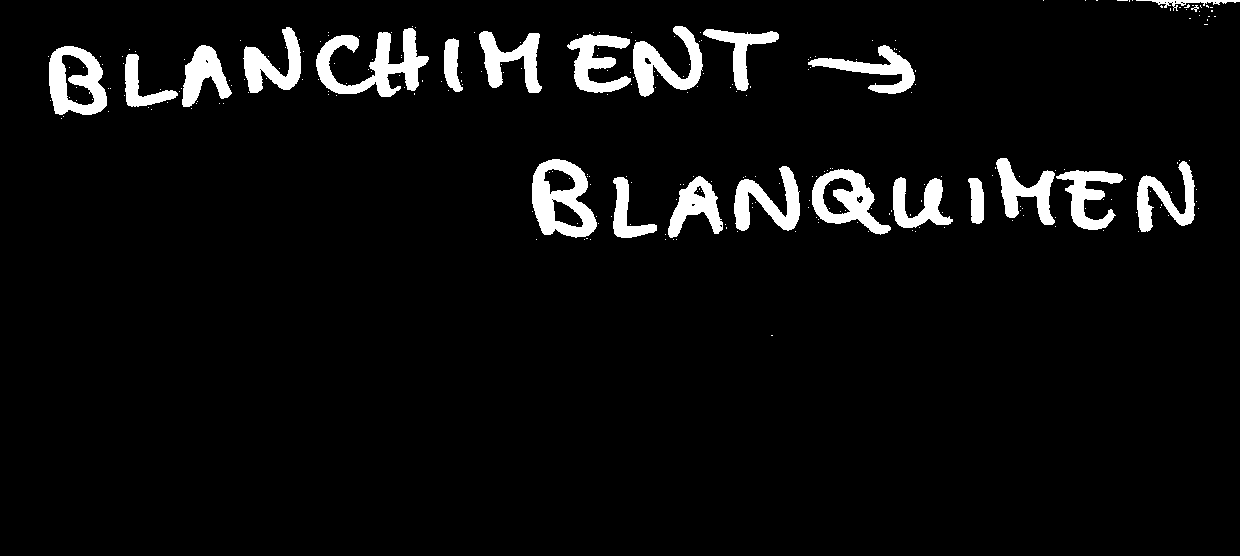 BLANCHIMENT →
BLANQUIMEN